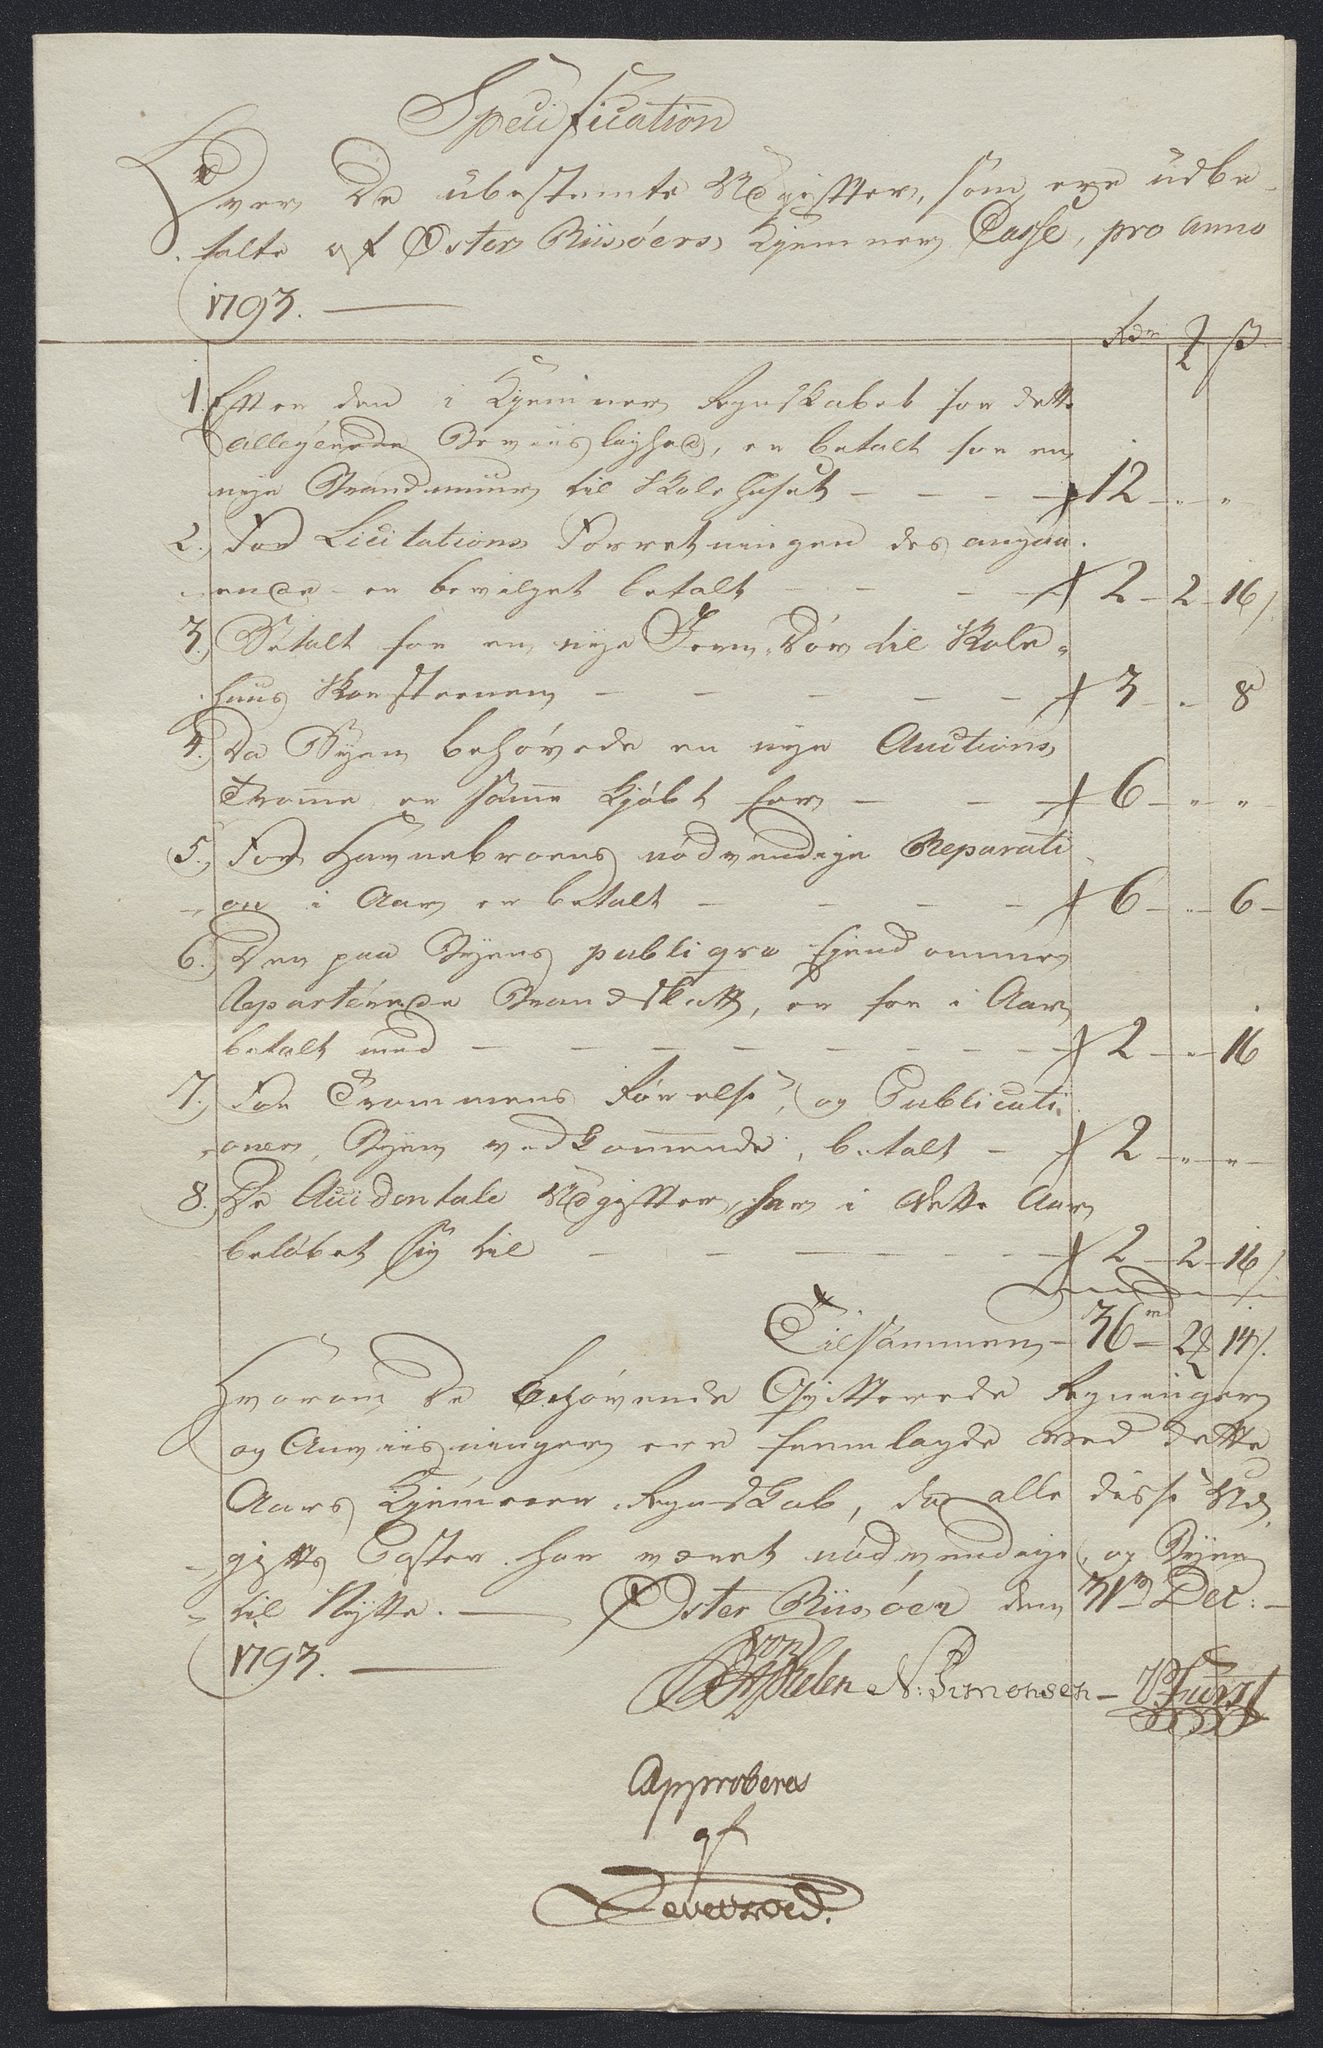 Specification
Over De ubestemte Udgifter, som ere udbe-
talte af Øster Riisøers Kjemner Casse, pro anno
1793.
Rdr ß
1. Efter den i Kjemner Regnskabet for dette
allegerede Beviislighed, er betalt for en
nye Brandmuur til Skolehuset - - - - 12 - " - "
2. For Licitations Forretningen des angaa-
ende er bevilget betalt - - - - 2 - 2 - 16
3. Betalt for en nye Jern-Dør til Skole-
huus Skorsteenen - - - - - 3 - " 8
4. Da Byen behøvede en nye Auctions
Tromme er samme kjøbt for - - - 6 - " - "
5. For Havnebroens nødvendige Reparati-
on i Aar er betalt - - - - 6 - " - 6 -
6. Den paa Byens publiqve Ejendomme
Reparterede Brandskatt, er for i Aar
betalt med - - - - - - - - 2 - " - 16
7. For Trommens Rørelse, og Publicati-
oner, Byen vedkommende, betalt - 2 - " - "
8. De Accidentale Udgifter, har i dette Aar
beløbet sig til - - - - - 2 - 2 - 16
Tilsammen - 36 - 2 14
Hvorom De behøvende Qvitterede Regninger
og Anviisninger ere fremlagde med dette
Aars Kjemner Regnskab, da alle disse Ud-
gifts Poster har været nødvendige, og Byen
til Nytte. - Øster Riisøer den 31te Dec: -
1793.
N: Simonsen - Fürst
Approberes
af